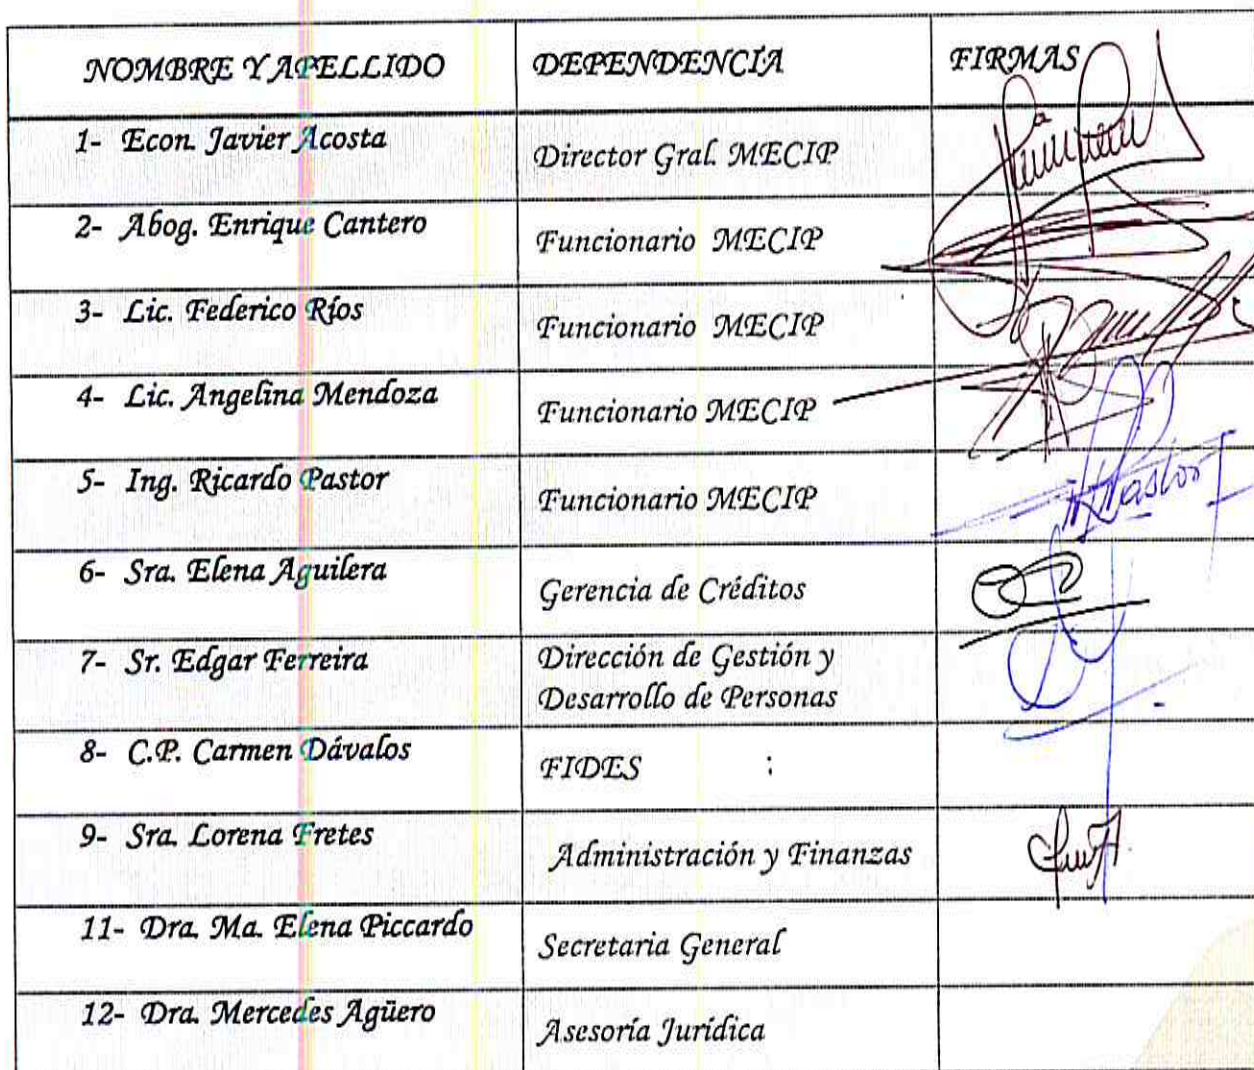 NOMBRE Y APELLIDO DEPENDENCÍA FIRMAS
1- Econ. Javier Acosta Director Gral. MECIP
2- Abog. Enrique Cantero Funcionario MECIP
3- Lic. Federico Ríos Funcionario MECIP
4- Lic. Angelina Mendoza Funcionario MECIP
5- Ing. Ricardo Pastor Funcionario MECIP
RPastor
6- Sra. Elena Aguilera Gerencia de Créditos
7- Sr. Edgar Ferreira Dirección de Gestión y
Desarrollo de Personas
8- C.P. Carmen Dávalos FIDES :
9- Sra. Lorena Fretes Administración y Finanzas
11- Dra. Ma. Elena Piccardo Secretaria General
12- Dra. Mercedes Agüero Asesoría Jurídica